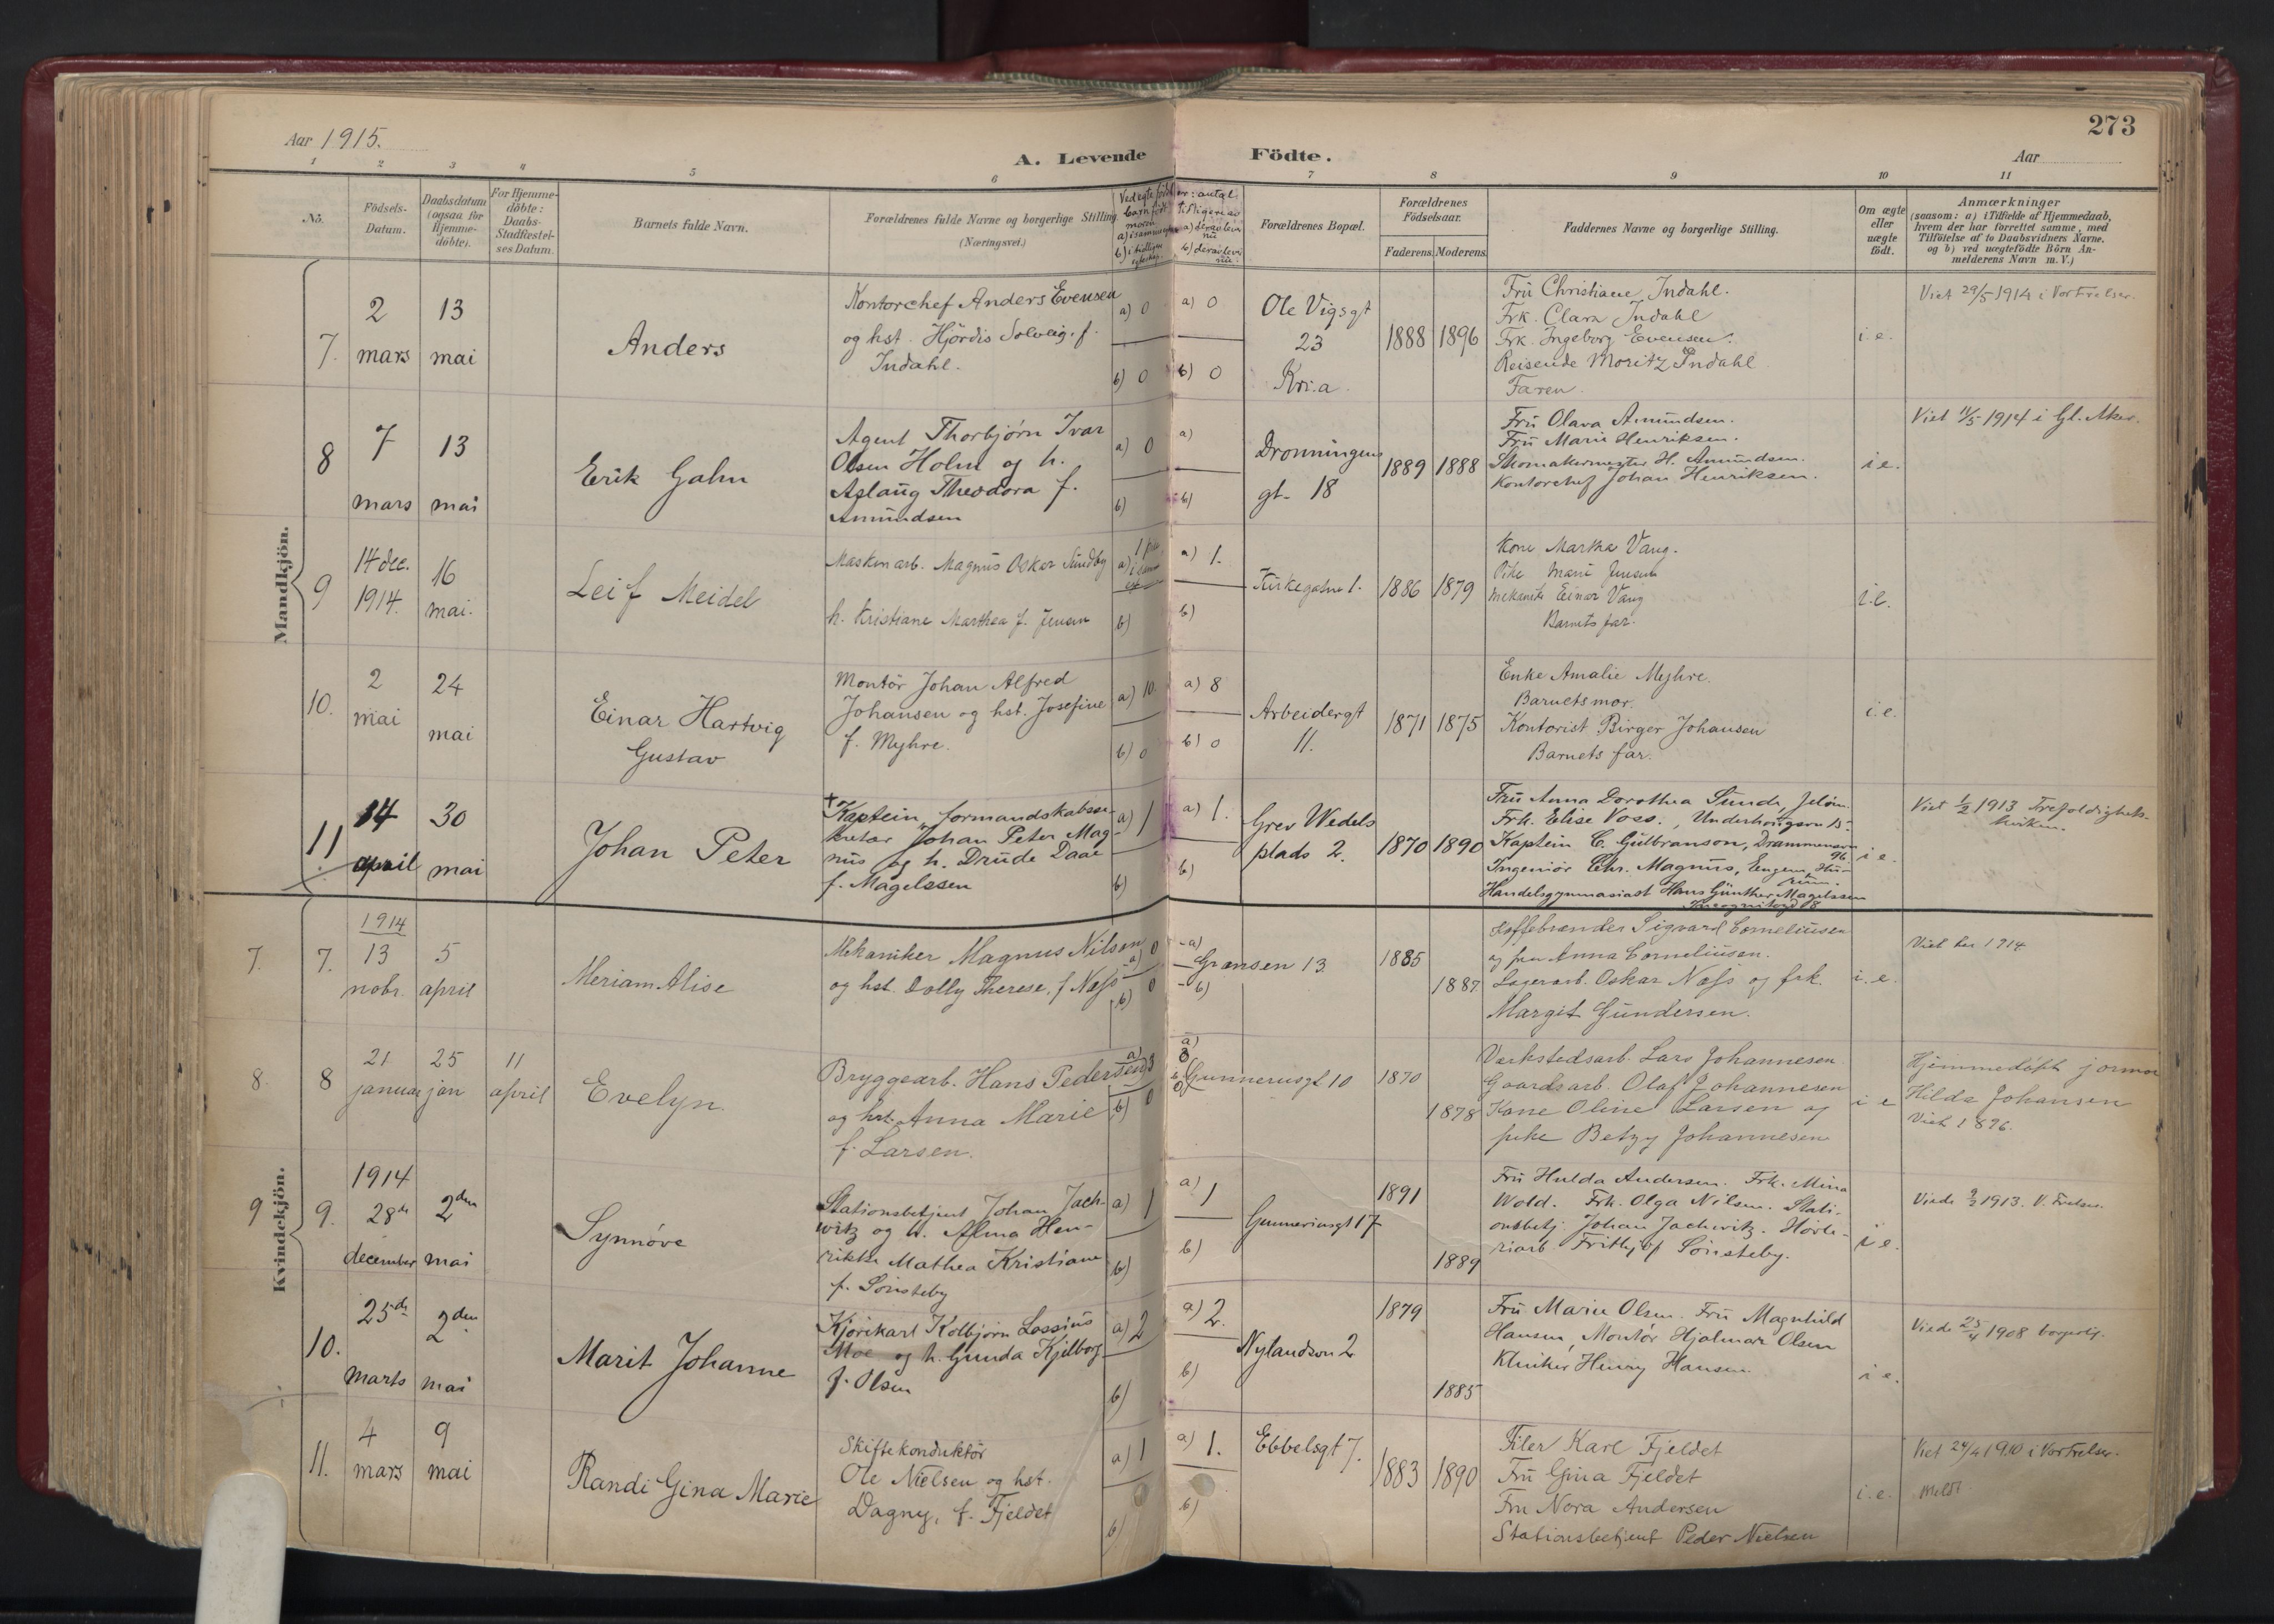 273
Aar 1915.
A. Levende Födte.
Aar
1 2 3 4 5 6 7 8 9 10 11
No.
Födsels-Datum.
Daabsdatum (ogsaa for Hjemme-döbte).
For Hjemme-döbte: Daabs-Stadfæstel-ses Datum.
Barnets fulde Navn.
Forældrenes fulde Navne og borgerlige Stilling
(Næringsvei.)
Forældrenes Bopæl.
Forældrenes Födselsaar.
Faderens. Moderens.
Faddernes Navne og borgerlige Stilling.
Om ægte eller uægte födt.
Anmærkninger
(saasom: a) i Tilfælde af Hjemmedaab, hvem der har forrettet samme, med Tilföielse af to Daabsvidners Navne. og b) ved uægtefödte Börn Anmelderens Navn m. V.)
Mandkjön.
7. 2 mars 13 mai
Anders
Kontorchef Anders Evensen
og hst. Hjördis Solveig, f.
Indahl.
a) 0 b) 0
a) 0 b) 0
Ole Vigsgt
23
Kr.a.
1888 1896
Fru Christiane Indahl.
Frk. Clara Indahl
Frk. Ingeborg Evensen.
Reisende Moritz Indahl
Faren.
i.e.
Viet 29/5 1914 i Vor Frelser.
8 7 mars 13 mai
Erik Gahn
Agent Thorbjørn Ivar
Olsen Holm og h.
Aslaug Theodora f.
Amundsen
a) 0 b)
a) b)
Dronningens
gt. 18
1889 1888
Fru Olava Amundsen.
Fru Marie Henriksen.
Skomakermester H. Amundsen.
Kontorchef Johan Henriksen.
i.e.
Viet 11/5 1914 i Gl. Aker.
9 14 dec. 1914. 16 mai.
Leif Meidel
Maskinarb. Magnus Oskar Sundby
h. Kristiane Marthea f. Jensen
a) b)
a) 1. b)
Kirkegaten 1.
1886 1879
Kone Martha Vang.
Pike Marie Jensen
Mekaniker Einar Vang
Barnets far.
i.e.
10. 2 mai 24 mai
Einar Hartvig
Gustav
Montör Johan Alfred
Johansen og hst. Josefine
f. Myhre.
a) 10. b) 0
a) 8 b) 0
Arbeidergt
11.
1871 1875
Enke Amalie Myhre.
Barnets mor.
Kontorist Birger Johansen
Barnets far.
i.e.
11. 14 april 30 mai
Johan Peter
Kaptein, formandskabsse-
kretær Johan Peter Mag-
nus og h. Drude Daae
f. Magelssen
a) 1 b)
a) 1. b)
Grev Wedels
plads 2.
1870 1890
Fru Anna Dorothea Sunde,
Frk. Elise Voss.,
Kaptein C. Gulbranson, Drammensvn
96
Ingeniör Chr. Magnus,
Handelsgymnasiast Hans Günther Magelssen
i e.
Viet 1/2 1913 Trefoldigheds-
kirken.
Kvindekjön.
7. 7. 1914 13 nobr. 5 april
Meriam Alise
Mekaniker Magnus Nilsen
og hst. Dolly Therese, f. Næss
a) 0 b) 0
a) b)
Grænsen 13
1885 1887
Kaffebrænder Sigvard Corneliusen
og fru Anna Corneliusen.
Lagerarb. Oskar Næss og frk.
Margit Gundersen.
i. e.
Viet her 1914
8. 8 21 januar 25 jan 11 april
Evelyn
Bryggearb. Hans Pedersen
og hst. Anna Marie
f. Larsen.
a) 3 b) 0
a) 3 b) 0
Gunnerusgt 10
1870 1878
Verkstedsarb. Lars Johannesen
Gaardsarb. Olaf Johannesen
Kone Oline Larsen og
pike Betzy Johannesen
i e
Hjemmedöpt jormor
Hilda Johansen
Viet 1896.
9 9. 1914 28de december 2den mai
Synnöve
Stationsbetjent Johan Jach-
witz og h. Alma Hen-
rikke Mathea Kristiane
f. Sönsteby
a) 1 b)
a) 1 b)
Gunnerusgt 17
1891 1889
Fru Hulda Andersen. Frk. Mina
Wold. Frk. Olga Nilsen. Stati-
onsbetj. Johan Jachwitz.
Frithjof Sönsteby.
i e.
Viede 9/2 1913. V. Frelser.
10. 25de marts 2den mai
Marit Johanne
Kjörekarl Kolbjörn Lossius
Moe og h. Gunda Kjelborg
f. Olsen
a) 2 b)
a) 2. b)
Nylandsvn 2
1879 1885
Fru Marie Olsen. Fru Magnhild
Hansen, Montör Hjalmar Olsen
Klinker Henry Hansen.
i e.
Viede 25/4 1908 borgerlig.
11. 4 mars 9 mai
Randi Gina Marie
Skiftekonduktör
Ole Nielsen og hst.
Dagny, f. Fjeldet
a) 1 b)
a) 1. b)
Ebbelsgt 7.
1883 1890
Filer Karl Fjeldet
Fru Gina Fjeldet
Fru Nora Andersen
Stationsbetjent Peder Nielsen
i.e.
Viet 24/4 1910 i Vor Frelser.
Meldt